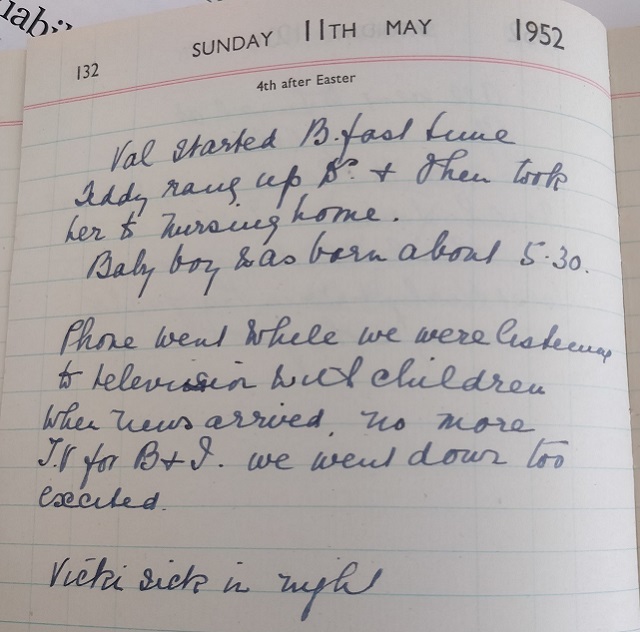 nabil
SUNDAY 11TH MAY 1952
132
4th after Easter
Val started B.fast time
Teddy rang up Dr. + then took
her to nursing home.
Baby boy was born about 5.30.
Phone went while we were listening
to television with children
when news arrived, no more
T.V for B + I. we went down too
excited.
Vicki sick in night